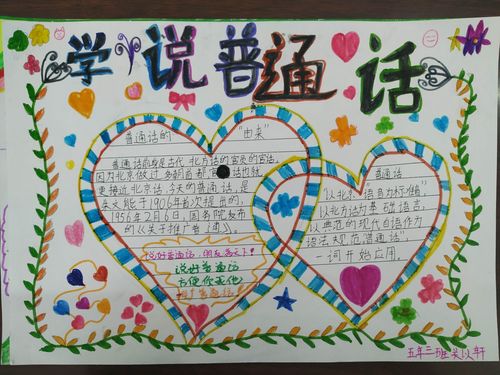 学说普通话
普通话的“由来”
普通话前身是古代北方话的官员的官话，
因为北京做过多朝首都官话也就
更接近北京话。今天的普通话，是
朱文熊于1906年首次提出的，
1956年2月6日，国务院发布
的《关于推广普通》。
说好普通话，朋友高天下！
说好普通话
方便你我他
普通话
“以北京语音为标准”
以北方话为基础语言，
以典范的现代白话作为
语法规范普通话”
一词开始应用。
五年二班 吴以轩